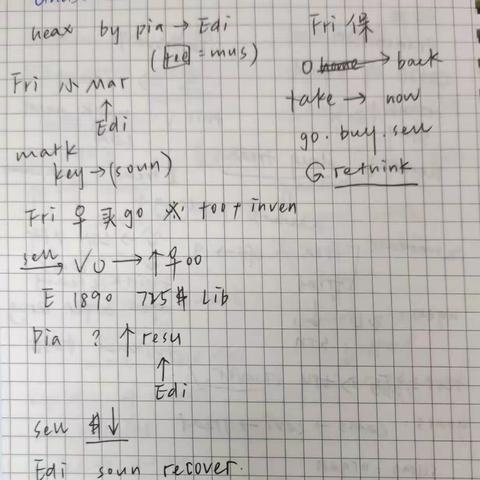 neax by pia → Edi
( = mus)
Fri 小 Mar
↑
Edi
mark
key → (soun)
Fri 우 买 go foot inven
sell VO → ↑ 우oo
E 1890 725$ Lib
Pia ? ↑ resu
↑
Edi
sell $ ↓
Edi soun recover.
Fri 保
O home → back
take → now
go. buy. sell
G rethink